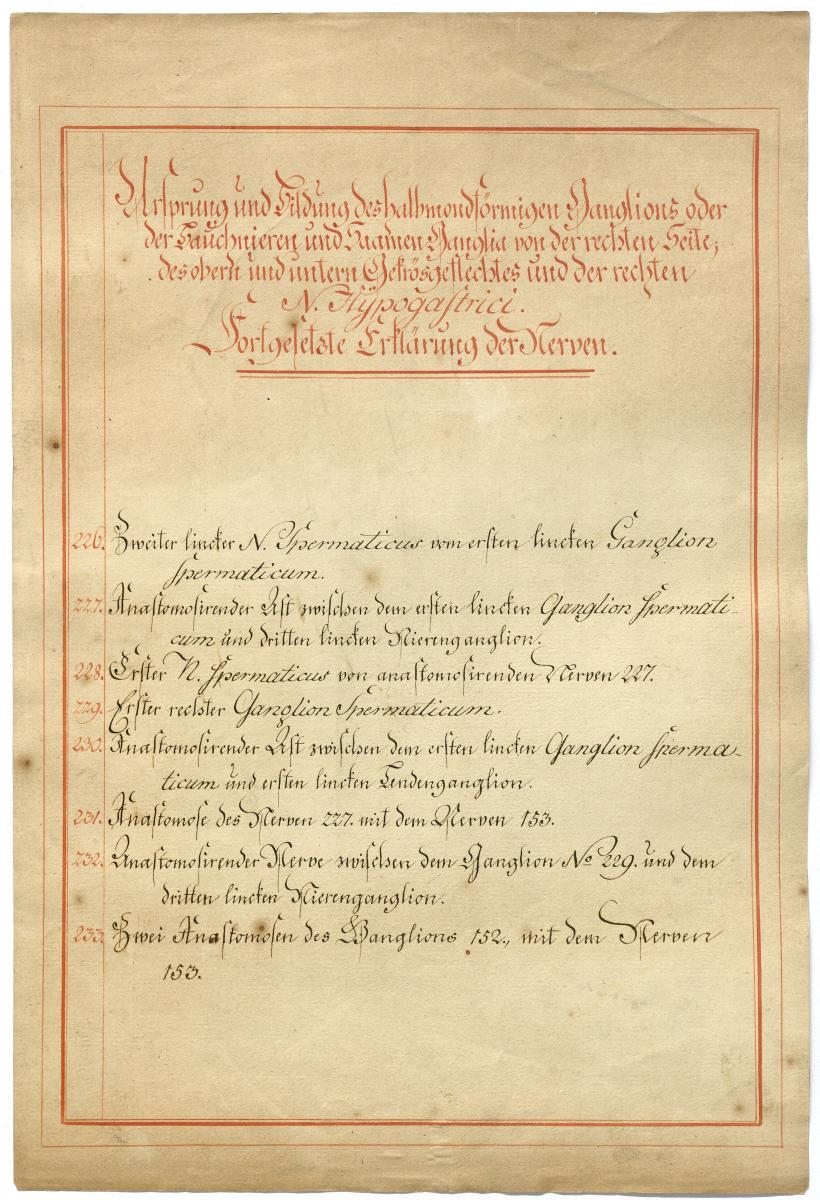 Ursprung und Bildung des halbmondförmigen Ganglions oder
der Bauchnieren und Saamen Ganglia von der rechten Seite,
des obern und untern Gekrösgeflechtes und der rechten
N. Hÿpogastrici.
Fortgesetzte Erklärung der Nerven.
226. Zweiter lincker N. Spermaticus vom ersten lincken Ganglion
Spermaticum.
227. Anastomosirender Ast zwischen dem ersten lincken Ganglion Spermati-
cum und dritten lincken Nierenganglion.
228. Erster N. Spermaticus von anastomosirenden Nerven 227.
229. Erster rechter Ganglion Spermaticum.
230. Anastomosirender Ast zwischen dem ersten lincken Ganglion Sperma-
ticum und ersten lincken Lendenganglion.
231. Anastomose des Nerven 227. mit dem Nerven 153.
232. Anastomosirender Nerve zwischen dem Ganglion No 229. und dem
dritten lincken Nierenganglion.
233. Zwei Anastomosen des Ganglions 152., mit dem Nerven
153.